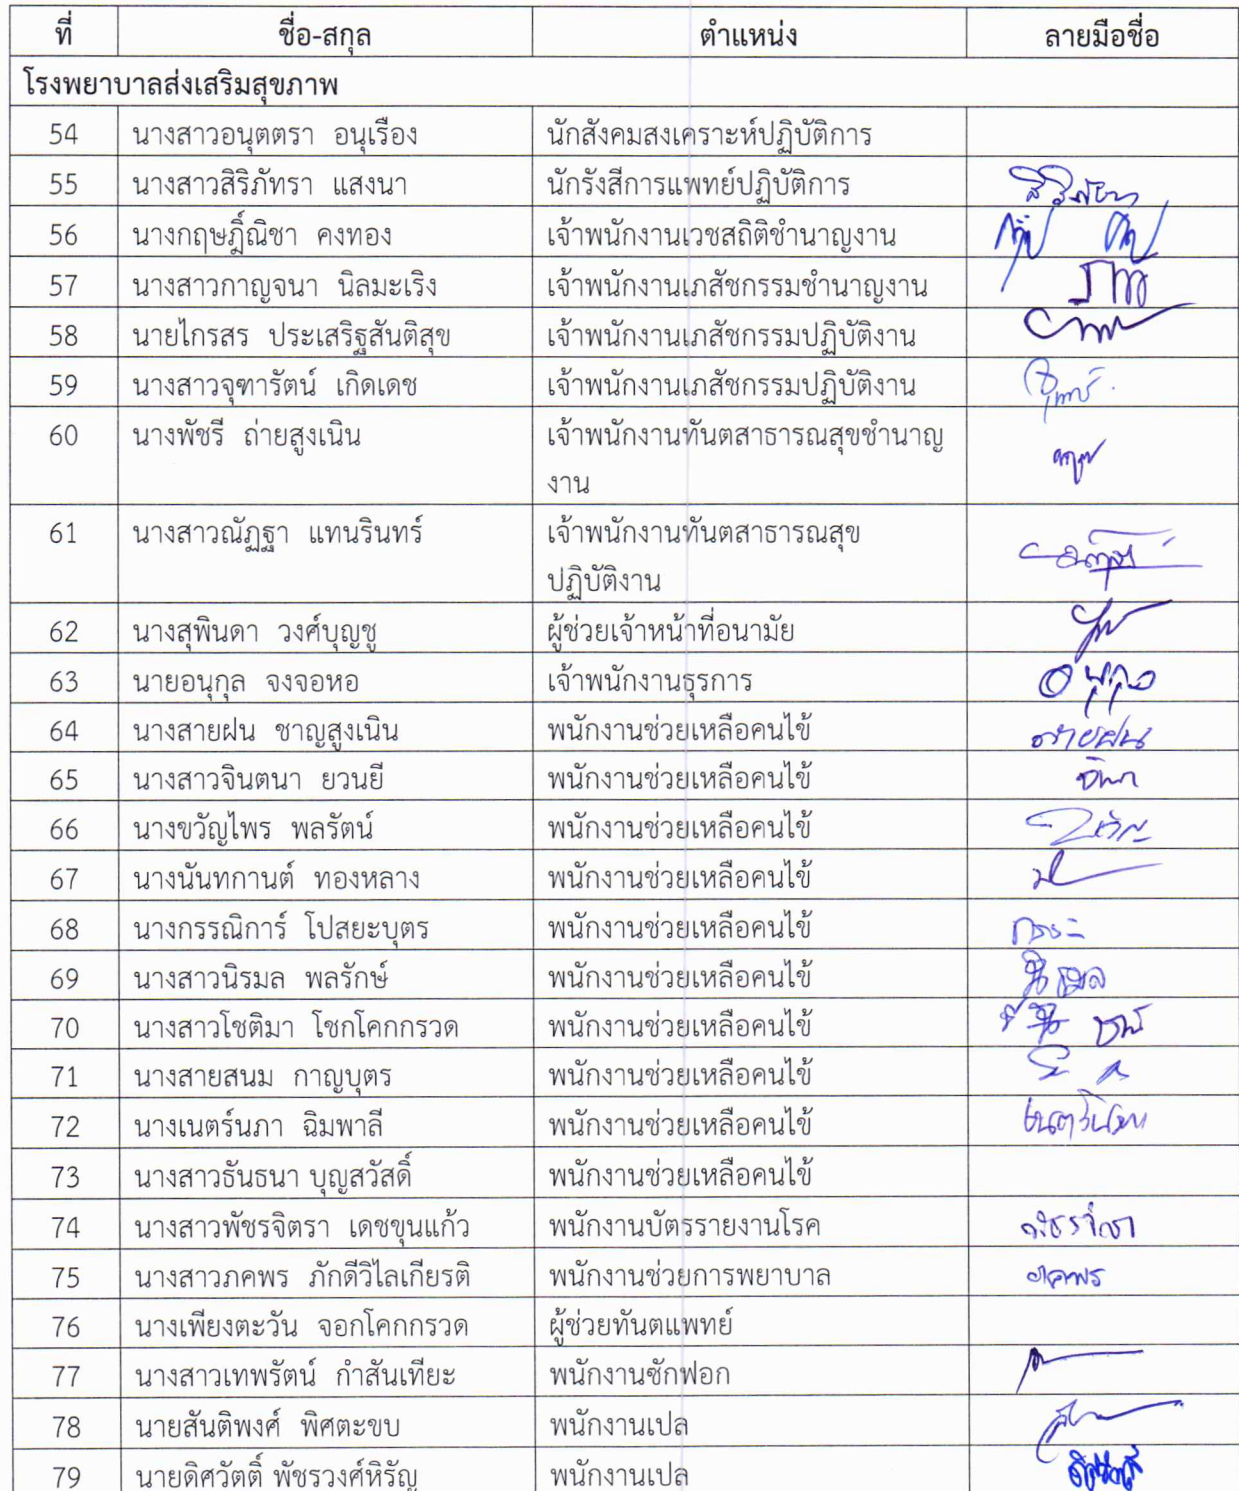 ที่ ชื่อ-สกุล ตำแหน่ง ลายมือชื่อ
โรงพยาบาลส่งเสริมสุขภาพ
54 นางสาวอนุตตรา อนุเรือง นักสังคมสงเคราะห์ปฏิบัติการ
55 นางสาวสิริภัทรา แสงนา นักรังสีการแพทย์ปฏิบัติการ
56 นางกฤษฎิ์ณิชา คงทอง เจ้าพนักงานเวชสถิติชำนาญงาน
57 นางสาวกาญจนา นิลมะเริง เจ้าพนักงานเภสัชกรรมชำนาญงาน
58 นายไกรสร ประเสริฐสันติสุข เจ้าพนักงานเภสัชกรรมปฏิบัติงาน
59 นางสาวจุฑารัตน์ เกิดเดช เจ้าพนักงานเภสัชกรรมปฏิบัติงาน
60 นางพัชรี ถ่ายสูงเนิน เจ้าพนักงานทันตสาธารณสุขชำนาญ
งาน
61 นางสาวณัฏฐา แทนรินทร์ เจ้าพนักงานทันตสาธารณสุข
ปฏิบัติงาน
62 นางสุพินดา วงศ์บุญชู ผู้ช่วยเจ้าหน้าที่อนามัย
63 นายอนุกุล จงจอหอ เจ้าพนักงานธุรการ
64 นางสายฝน ชาญสูงเนิน พนักงานช่วยเหลือคนไข้ สายฝน
65 นางสาวจินตนา ยวนยี พนักงานช่วยเหลือคนไข้
66 นางขวัญไพร พลรัตน์ พนักงานช่วยเหลือคนไข้
67 นางนันทกานต์ ทองหลาง พนักงานช่วยเหลือคนไข้
68 นางกรรณิการ์ โปสยะบุตร พนักงานช่วยเหลือคนไข้
69 นางสาวนิรมล พลรักษ์ พนักงานช่วยเหลือคนไข้ นิรมล
70 นางสาวโชติมา โชกโคกกรวด พนักงานช่วยเหลือคนไข้
71 นางสายสนม กาญบุตร พนักงานช่วยเหลือคนไข้
72 นางเนตร์นภา ฉิมพาลี พนักงานช่วยเหลือคนไข้
73 นางสาวธันธนา บุญสวัสดิ์ พนักงานช่วยเหลือคนไข้
74 นางสาวพัชรจิตรา เดชขุนแก้ว พนักงานบัตรรายงานโรค
75 นางสาวภคพร ภักดีวิไลเกียรติ พนักงานช่วยการพยาบาล ภคพร
76 นางเพียงตะวัน จอกโคกกรวด ผู้ช่วยทันตแพทย์
77 นางสาวเทพรัตน์ กำสันเทียะ พนักงานซักฟอก
78 นายสันติพงศ์ พิศตะขบ พนักงานเปล
79 นายดิศวัตติ์ พัชรวงศ์หิรัญ พนักงานเปล